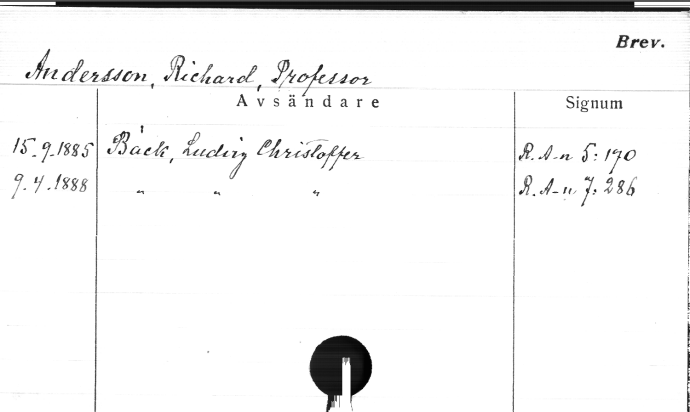 Brev.
Andersson, Richard, Professor
Avsändare Signum
15.9.1885 Bäck, Ludvig Christoffer R.A-n 5:190
9.4.1888 " " " R.A-n 7:286